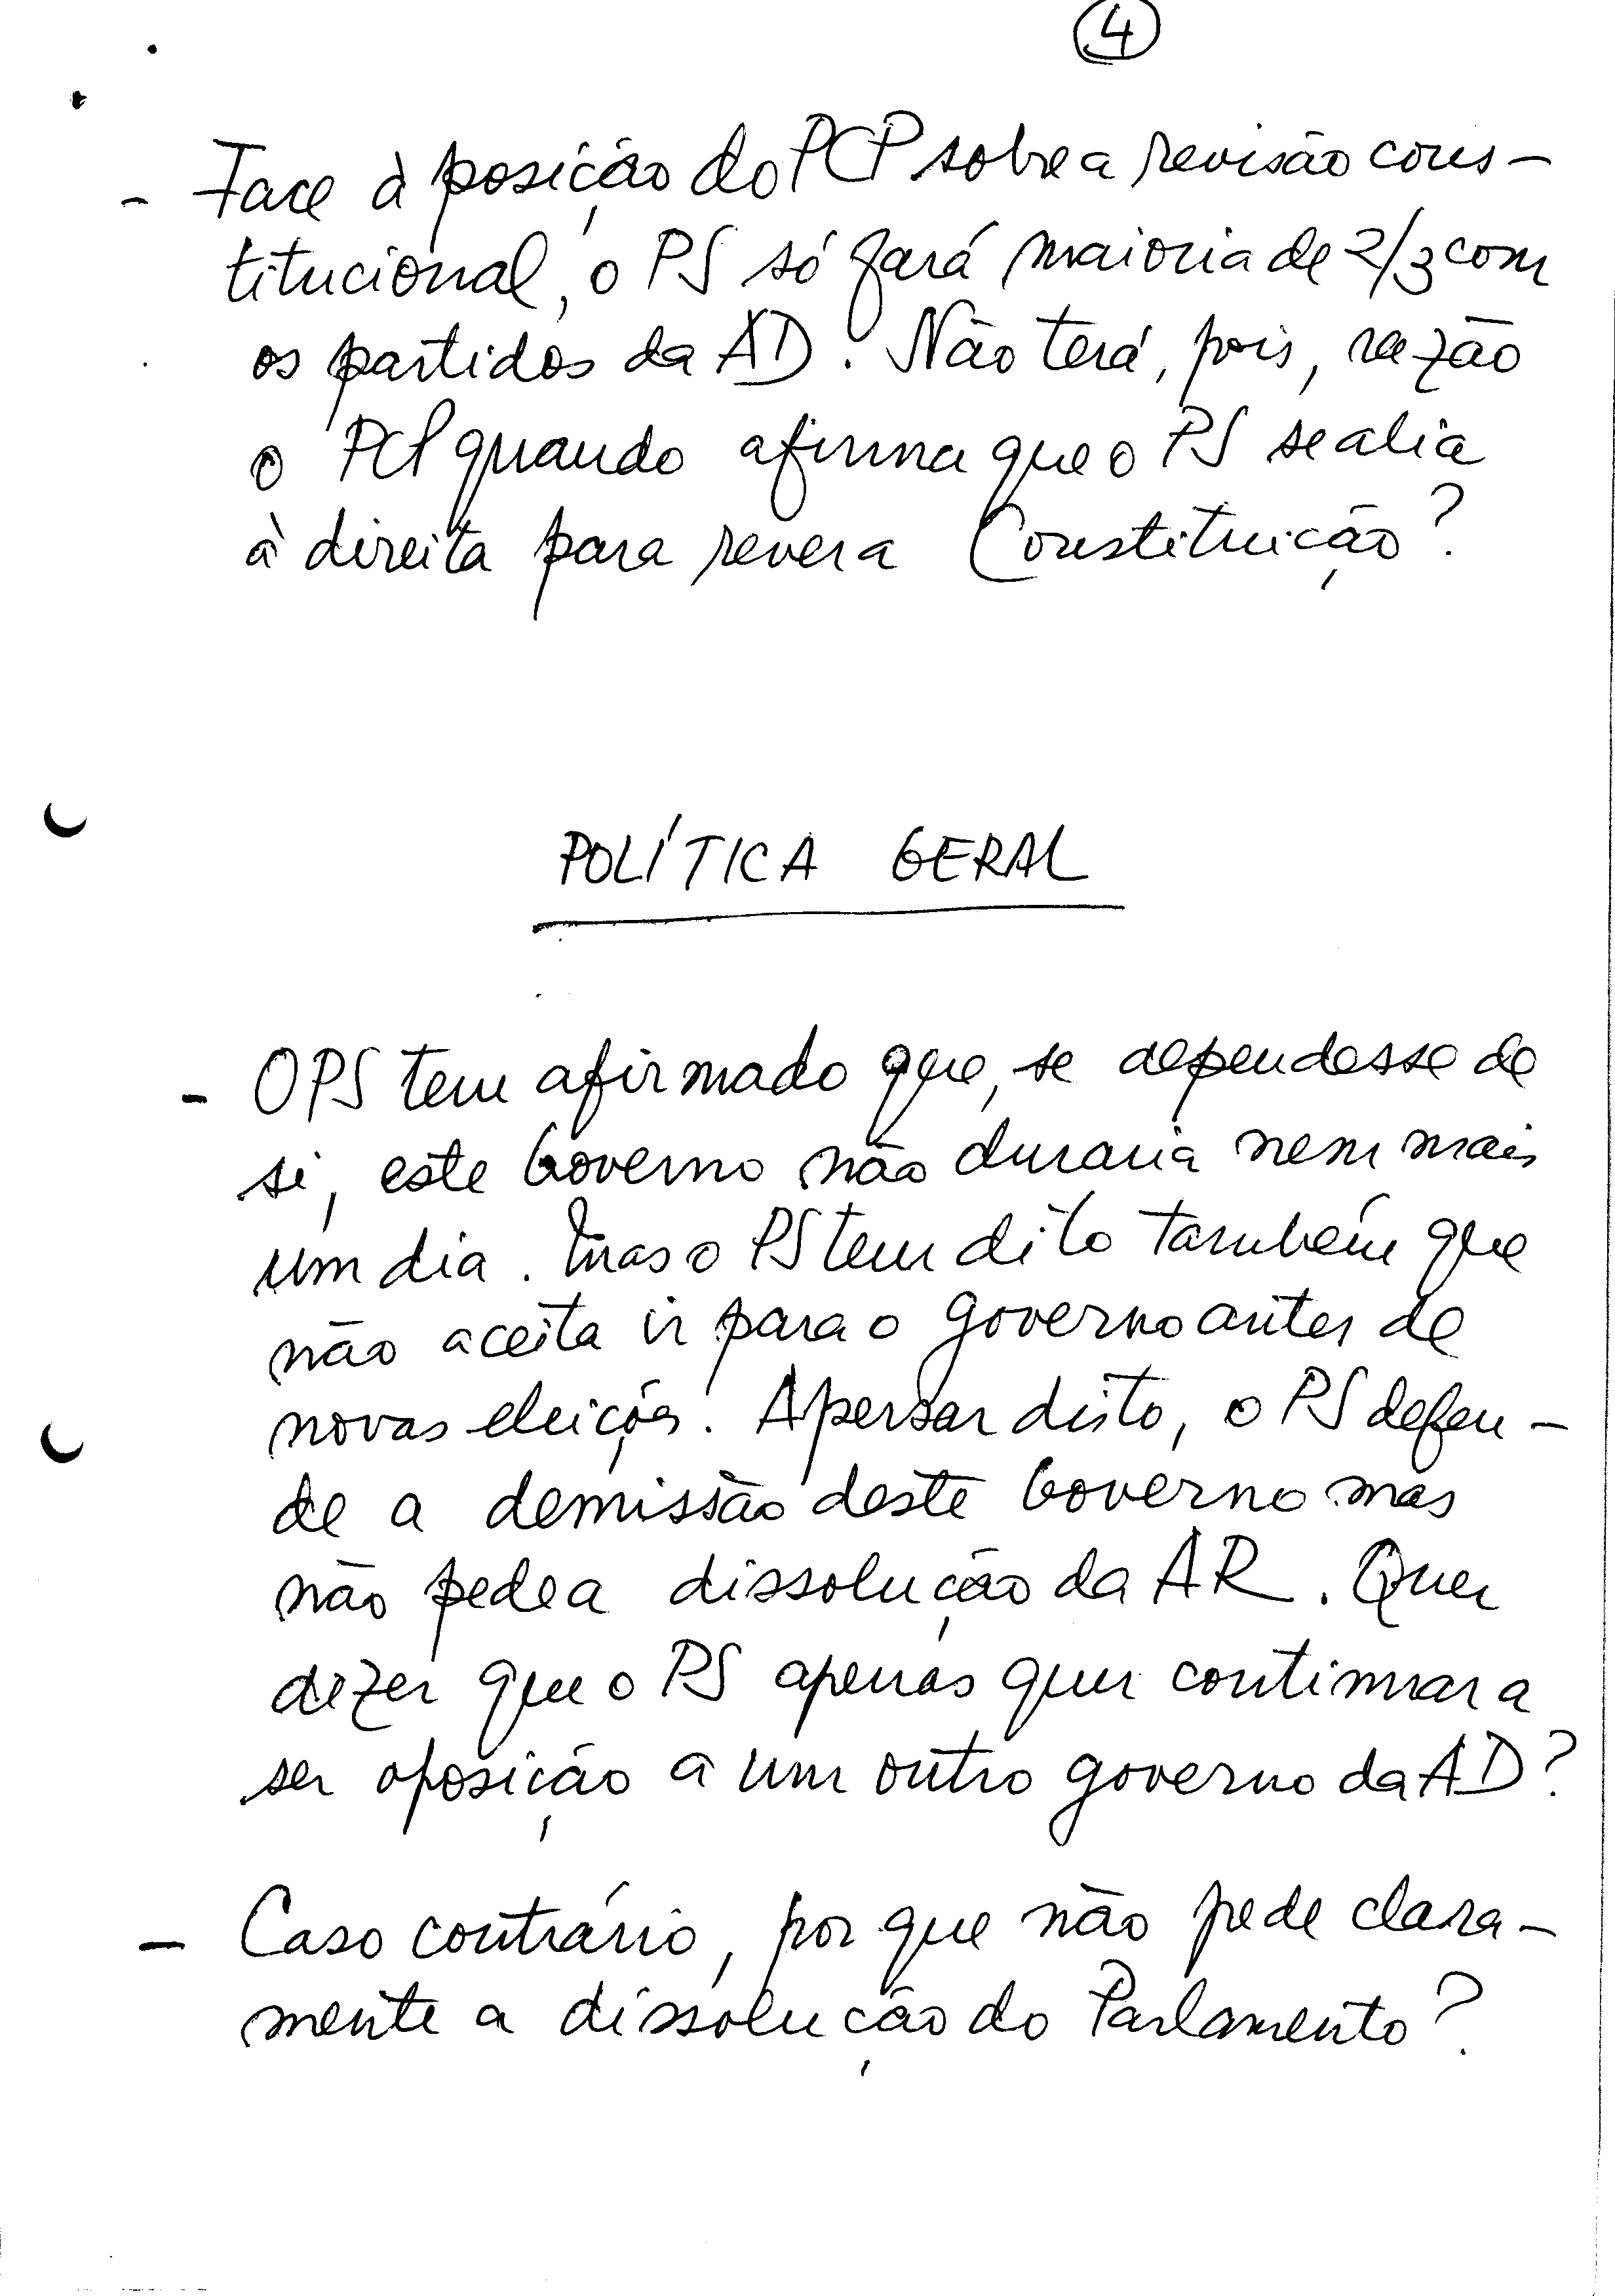 4
- Face à posição do PCP sobre a revisão cons-
titucional, o PS só fará maioria de 2/3 com
os partidos da AD. Não terá, pois, razão
o PCP quando afirma que o PS se alia
à direita para rever a Constituição?
POLÍTICA GERAL
- O PS tem afirmado que, se dependesse de
si, este Governo não duraria nem mais
um dia. Mas o PS tem dito também que
não aceita ir para o governo antes de
novas eleições. Apersar disto, o PS defen-
de a demissão deste Governo mas
não pede a dissolução da AR. Quer
dizer que o PS apenas quer continuar a
ser oposição a um outro governo da AD?
- Caso contrário, por que não pede clara-
mente a dissolução do Parlamento?